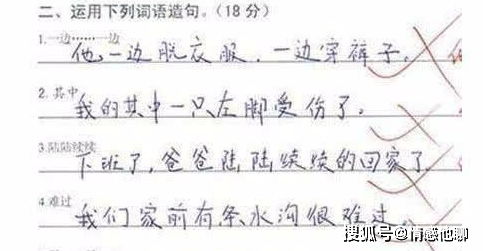 二、运用下列词语造句。(18分)
1.一边……一边
他一边脱衣服，一边穿裤子。
2.其中
我的其中一只左脚受伤了。
3.陆陆续续
下班了，爸爸陆陆续续的回家了
4.难过
我们家前有条水沟很难过。
搜狐号@情感他聊